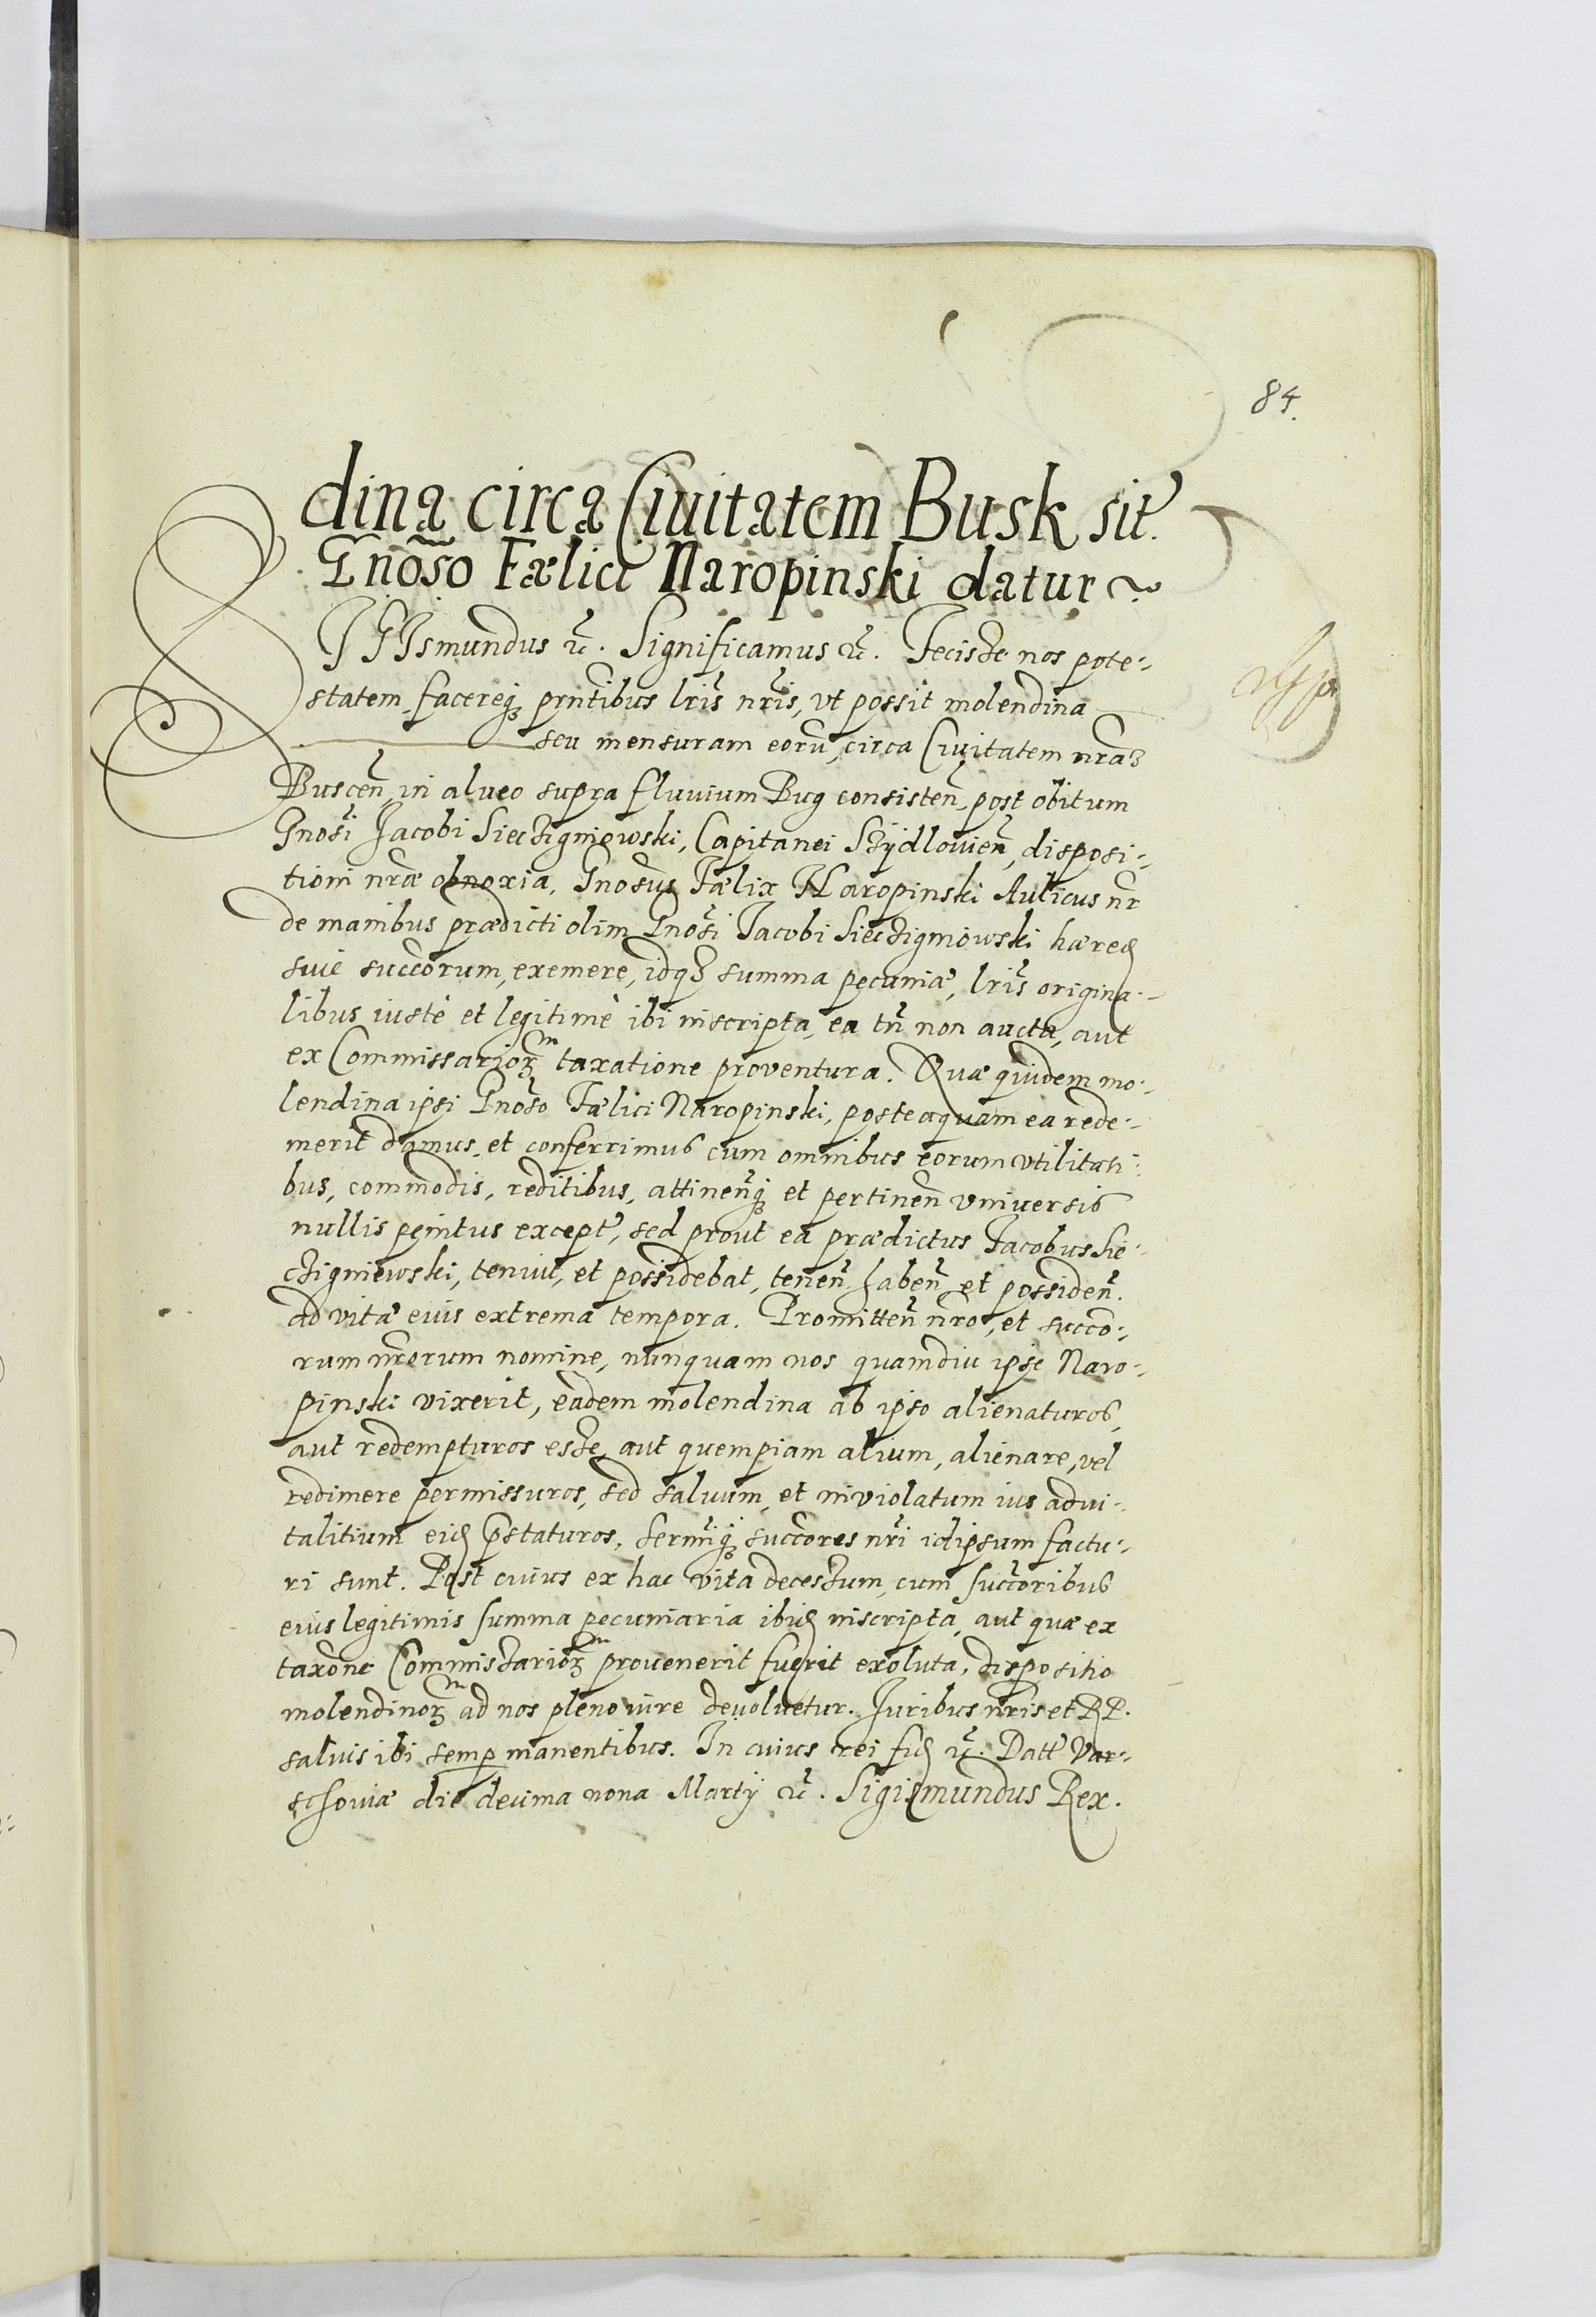 84.
dina circa Civitatem Busk sit.
Gnoso Fælici Naropinski datur
SIGIsmundus etc. Significamus etc. Fecisse nos pote-
statem, facereq prntibus lris nris, vt possit molendina
seu mensuram eoru, circa Civitatem nram
Buscen, in alveo supra fluvium Bug consisten, post obitum
Gnosi Jacobi Siecżigniowski, Capitanei Sżÿdlovien, disposi-
tioni nræ obnoxia, Gnosus Fælix Naropinski Aulicus nr
de manibus prædicti olim Gnosi Jacobi Siecżigniowski hæred
suie succorum, exemere, idq summa pecuniæ, lris origina-
libus iustè et legitimè ibi inscripta, ea tn non aucta, aut
ex Commissarior taxatione proventura. Quæ quidem mo-
lendina ipsi Gnoso Fælici Naropinski, posteaquam ea rede-
merit damus, et conferrimus cum omnibus eorum vtilitati
bus, commodis, reditibus, attinenq et pertinen vniversis
nullis penitus except, sed prout ea prædictus Jacobus Sie-
cżigniewski, tenuit, et possidebat, tenen haben et possiden.
ad vitæ eius extrema tempora. Promitten nro, et succo-
rum nrorum nomine, nunquam nos quamdiu ipse Naro-
pinski vixerit, eadem molendina ab ipso alienaturos,
aut redempturos esse, aut quempiam alium, alienare, vel
redimere permissuros, sed salvum, et inviolatum ius advi-
talitium eid pstaturos, sermiq succores nri idipsum factu-
ri sunt. Post cuius ex hac vita decessum, cum succoribus
eius legitimis summa pecuniaria ibid inscripta, aut quæ ex
taxone Commissarior provenerit fuerit exoluta, dispositio
molendinor ad nos pleno iure devolvetur. Juribus nris et RP.
salvis ibi semp manentibus. In cuius rei fid etc. Datt Var-
schoviæ die decima nona Martÿ etc. Sigismundus Rex.